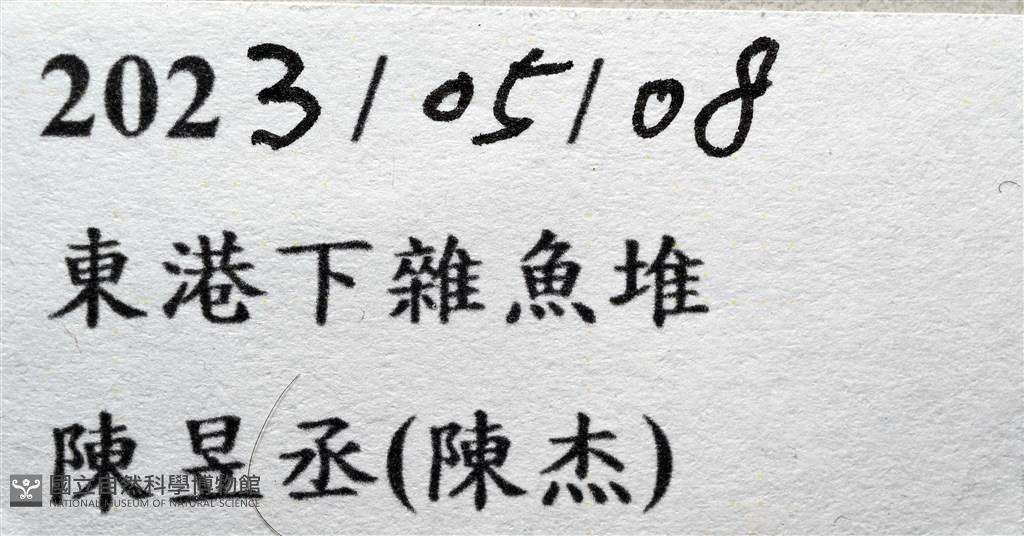 2023/05/08
東港下雜魚堆
陳昱丞(陳杰)
國立自然科學博物館
NATIONAL MUSEUM OF NATURAL SCIENCE